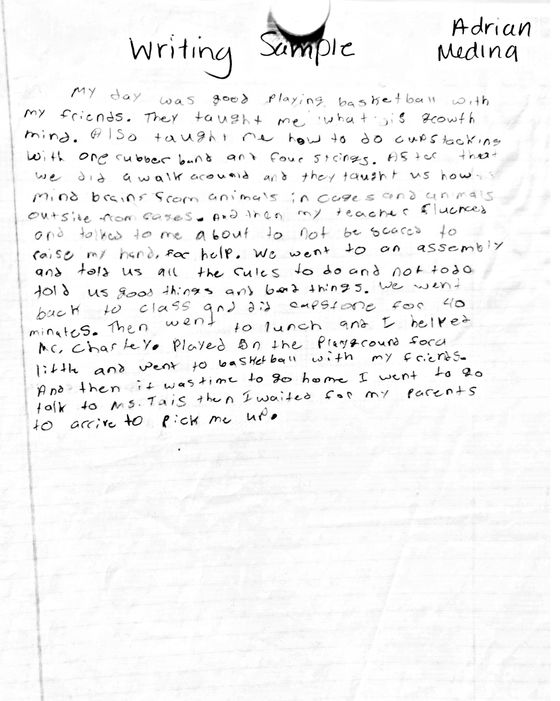 Writing Sample
Adrian
Medina
My day was good playing basketball with
my friends. They taught me what is growth
mind. Also taught me how to do cupstacking
with one rubber band and four strings. After that
we did a walk around and they taught us how
mind brains from animals in cages and animals
outsite from cages. And then my teacher fluences
and talked to me about to not be scared to
raise my hand, for help. We went to an assembly
and told us all the rules to do and not todo
told us good things and bad things. We went
back to class and did capstone for 40
minutes. Then went to lunch and I helked
Mr. Charley. Played on the Playground for a
little and went to basketball with my friends.
And then it was time to go home I went to go
talk to Ms. Tais then I waited for my parents
to arrive to pick me up.